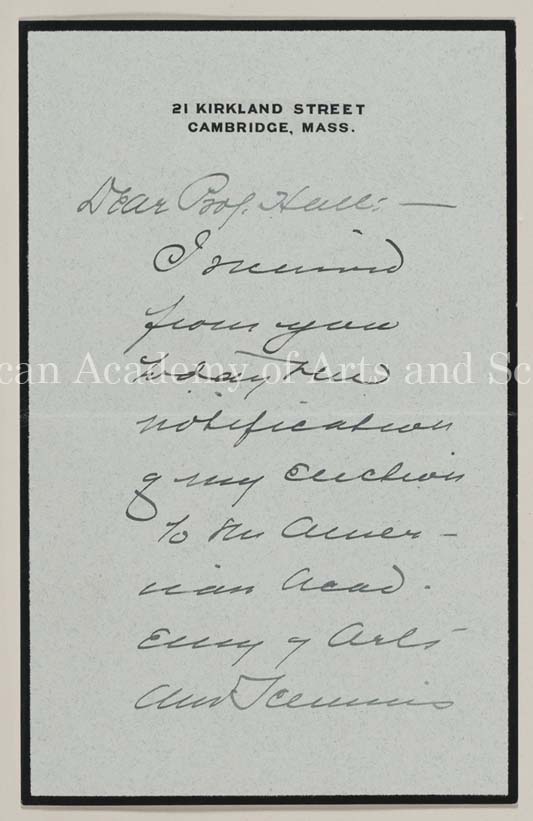 21 KIRKLAND STREET
CAMBRIDGE, MASS.
Dear Prof. Hall: —
I received
from you
to-day the
can Academy of Arts and Sc
notification
of my election
to the Amer-
ican Acad-
emy of Arts
and Sciences